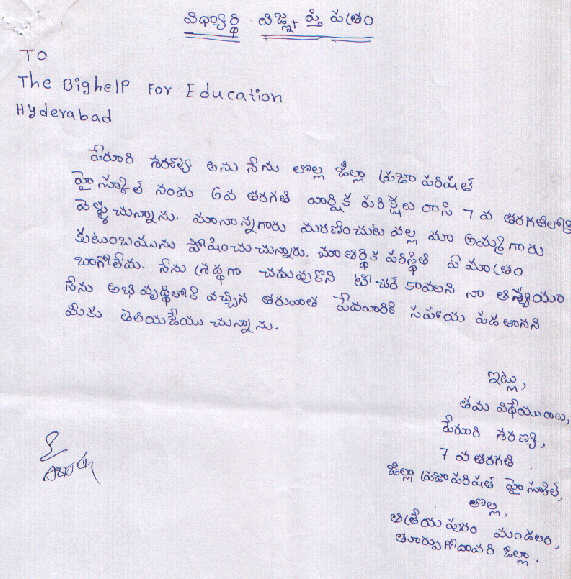 విద్యార్థి విజ్ఞప్తి పత్రం
TO
The Bighelp For Education
Hyderabad
పేరూరి శరణ్య అను నేను లొల్ల జిల్లా ప్రజా పరిషత్
హైస్కూల్ నందు 6వ తరగతి వార్షిక పరీక్షలు రాసి 7 వ తరగతిలోకి
వెళ్ళుచున్నాను. మా నాన్నగారు మరణించుట వల్ల మా అమ్మగారు
కుటుంబమును పోషించుచున్నారు. మా ఆర్థిక పరిస్థితి ఏ మాత్రం
బాగోలేదు. నేను శ్రద్ధగా చదువుకొని టీచర్ కావాలని నా ఆశయం
నేను అభివృద్ధిలోకి వచ్చిన తరువాత పేదవారికి సహాయ పడ తానని
మీకు తెలియజేయు చున్నాను.
ఇట్లు,
తమ విధేయురాలు,
పేరూరి శరణ్య,
7 వ తరగతి
జిల్లా ప్రజా పరిషత్ హై స్కూల్,
లొల్ల,
ఆత్రేయపురం మండలం,
తూర్పుగోదావరి జిల్లా.